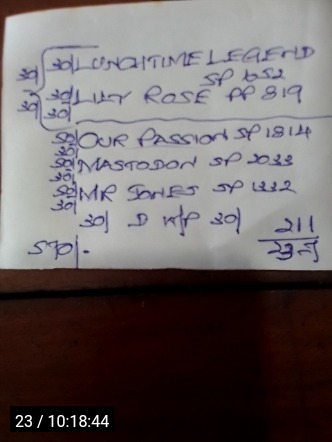 30/ LUNCHTIME LEGEND
30/ SP 652
30/ 30/ LILY ROSE PP 819
30/ 30/
50/ OUR PASSION SP 1814
30/
50/ MASTODON SP 2033
30/
50/ MR JONES SP 1332
30/
30/ D 30/ 211
570/.
23 / 10:18:44